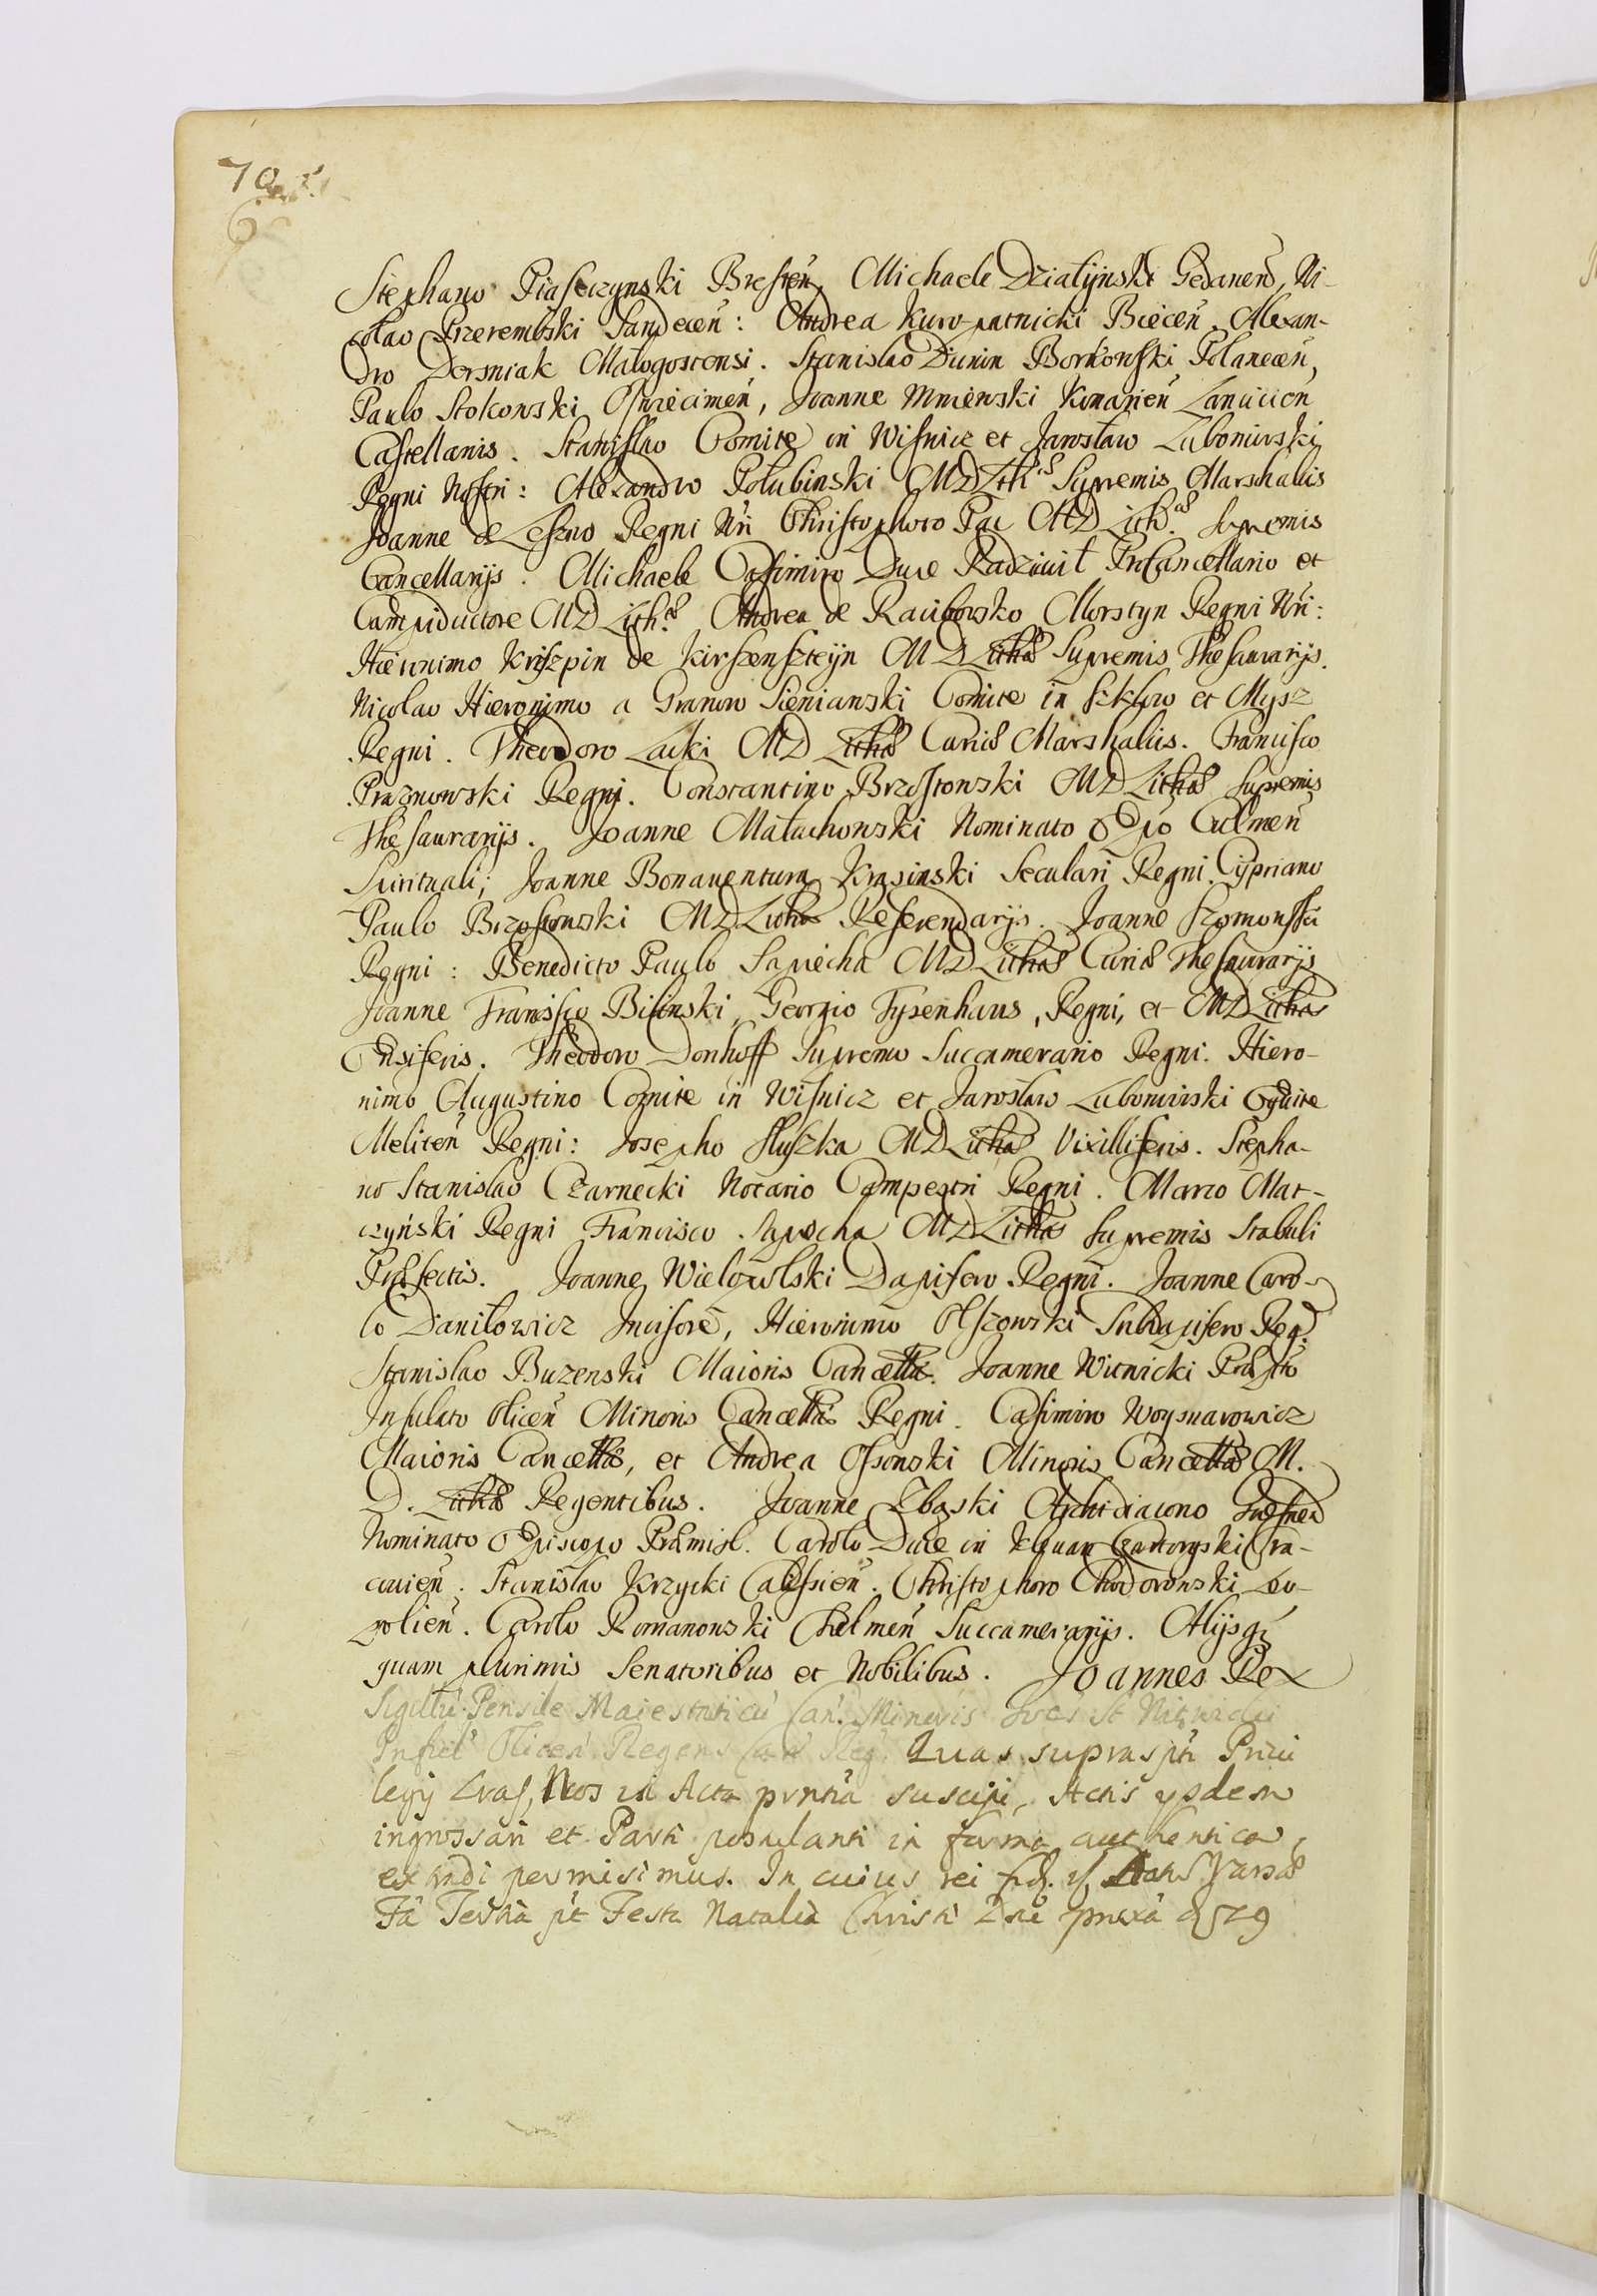 70
Stephano Piaseczynski Bresteñ, Michaele Dziatijnski Gedaneñ, Ni-
colao Przerembski Sandeceñ: Andrea Kuropatnicki Bieceñ. Alexan-
dro Dersniak Małogostensi. Stanislao Dunin Borkowski Polaneceñ,
Paulo Stokowski Osniecimeñ, Joanne Mniewski Konarieñ Lanicien
Castellanis. Stanislao Comite in Wisnicz et Jarosław Lubomirski
Regni Nostri: Alexandro Połubinski MD Lith: Supremis Marschalis
Joanne de Leszno Regni Nri Christophoro Pac MD Lith: Supremis
Cancellarijs. Michaele Casimiro Duce Radziwił ProCancellario et
Campiductore MD Lith: Andrea de Raciborsko Morstyn Regni Nri:
Hieronimo Kriszpin de Kirszenszteijn MD Lithæ Supremis Thesaurarijs.
Nicolao Hieronimo a Granow Sieniawski Comite in Szkłow et Mysz
Regni. Theodoro Lacki MD Lithæ Curiæ Marshalis. Francisco
Prazmowski Regni. Constantino Brzostowski MD Lithæ Supremis
Thesaurarijs. Joanne Małachowski Nominato Eppo Culmeñ
Spirituali; Joanne Bonaventura Krasinski Seculari Regni. Cypriano
Paulo Brzostowski MD Lithæ Referendarijs. Joanne Szomowski
Regni: Benedicto Paulo Sapiecha MD Lithæ Curiæ Thesaurarijs
Joanne Francisco Bilinski, Georgio Tysenhaus, Regni, et MD Lithæ
Ensiferis. Theodoro Donhoff Supremo Succamerario Regni. Hiero-
nimo Augustino Comite in Wisnicz et Jarosław Lubomirski Equite
Meliteñ Regni: Josepho Słuszka MD Lithæ Vixilliferis. Stepha-
no Stanislao Czarnecki Notario Campestri Regni. Marco Mat-
czyński Regni Francisco Sapiecha MD Lithæ Supremis Stabuli
Præfectis. Joanne Wielopolski Dapifero Regni. Joanne Caro-
lo Daniłowicz Incisore, Hieronimo Olszowski Subdapifero Reg:
Stanislao Buzenski Maioris Cancellæ. Joanne Witwicki Præpto
Infulato Oliceñ Minoris Cancellæ Regni. Casimiro Woysnarowicz
Maioris Cancellæ, et Andrea Ossowski Minoris Cancellæ M.
D. Lithæ Regentibus. Joanne Zbąski Archidiacono Gnesneñ
Nominato Episcopo Præmisl. Carolo Duce in Klewan Czartoryski Cra-
covieñ. Stanislao Krzycki Calissieñ. Christophoro Chodorowski Leo-
polieñ. Carolo Romanowski Chelmeñ Succamerarijs. Alijsq
quam plurimis Senatoribus et Nobilibus. Joannes Rex
Sigillū Pensile Maiestaticū Can: Minoris
Regens Quas suprasptī Privi
legij Lras, Nos in Acta pñtia suscipi, Actis ijsdem
ingrossari et Parti postulanti in forma authentica,
extradi permisimus. In cuius rei fid.
Fā Tertia pt Festa Natalia Christi Dni